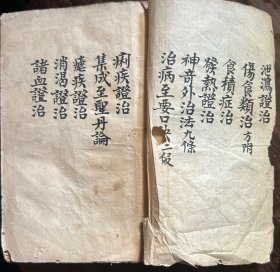 泄瀉證治
傷食類治方附
食積症治
發熱證治
神奇外治法九條
治病至要口
痢疾證治
集成至聖丹論
瘧疾證治
消渴證治
諸血證治